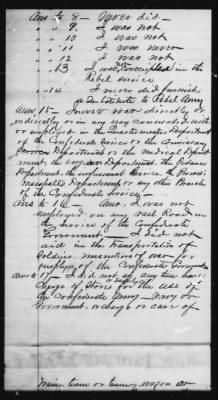 Ans to 8 - Never did -
" " 9. I was not
" " 10 I was not
" " 11 I was never
" " 12 I was not
" " 13 I was not in the
Rebel service
" " 14. I never did furnish
a Substitute to Rebel Army
Ans 15 - I never was directly or
indirectly or in any way connected with
or employed in the Quartermaster Department
of the Confederate force or the Commissary
Department or the Medical Depart
ment, the Department, the Ordnance
Department, the Service, the Provost
Marshals Department or any other Branch
of the Confederate Service -
Ans to 16 - Ans. I was not
employed on any rail Road in
the Service of the Confederate
Government - I did not
aid in the Transportation of
Soldiers, munitions of war for
employees of the Confederate Government
Ans to 17 - I did not at any time have
charge of Stores for the use of
the Confederate Army - Navy or
Government, or charge or care of
team or teams, wagon or